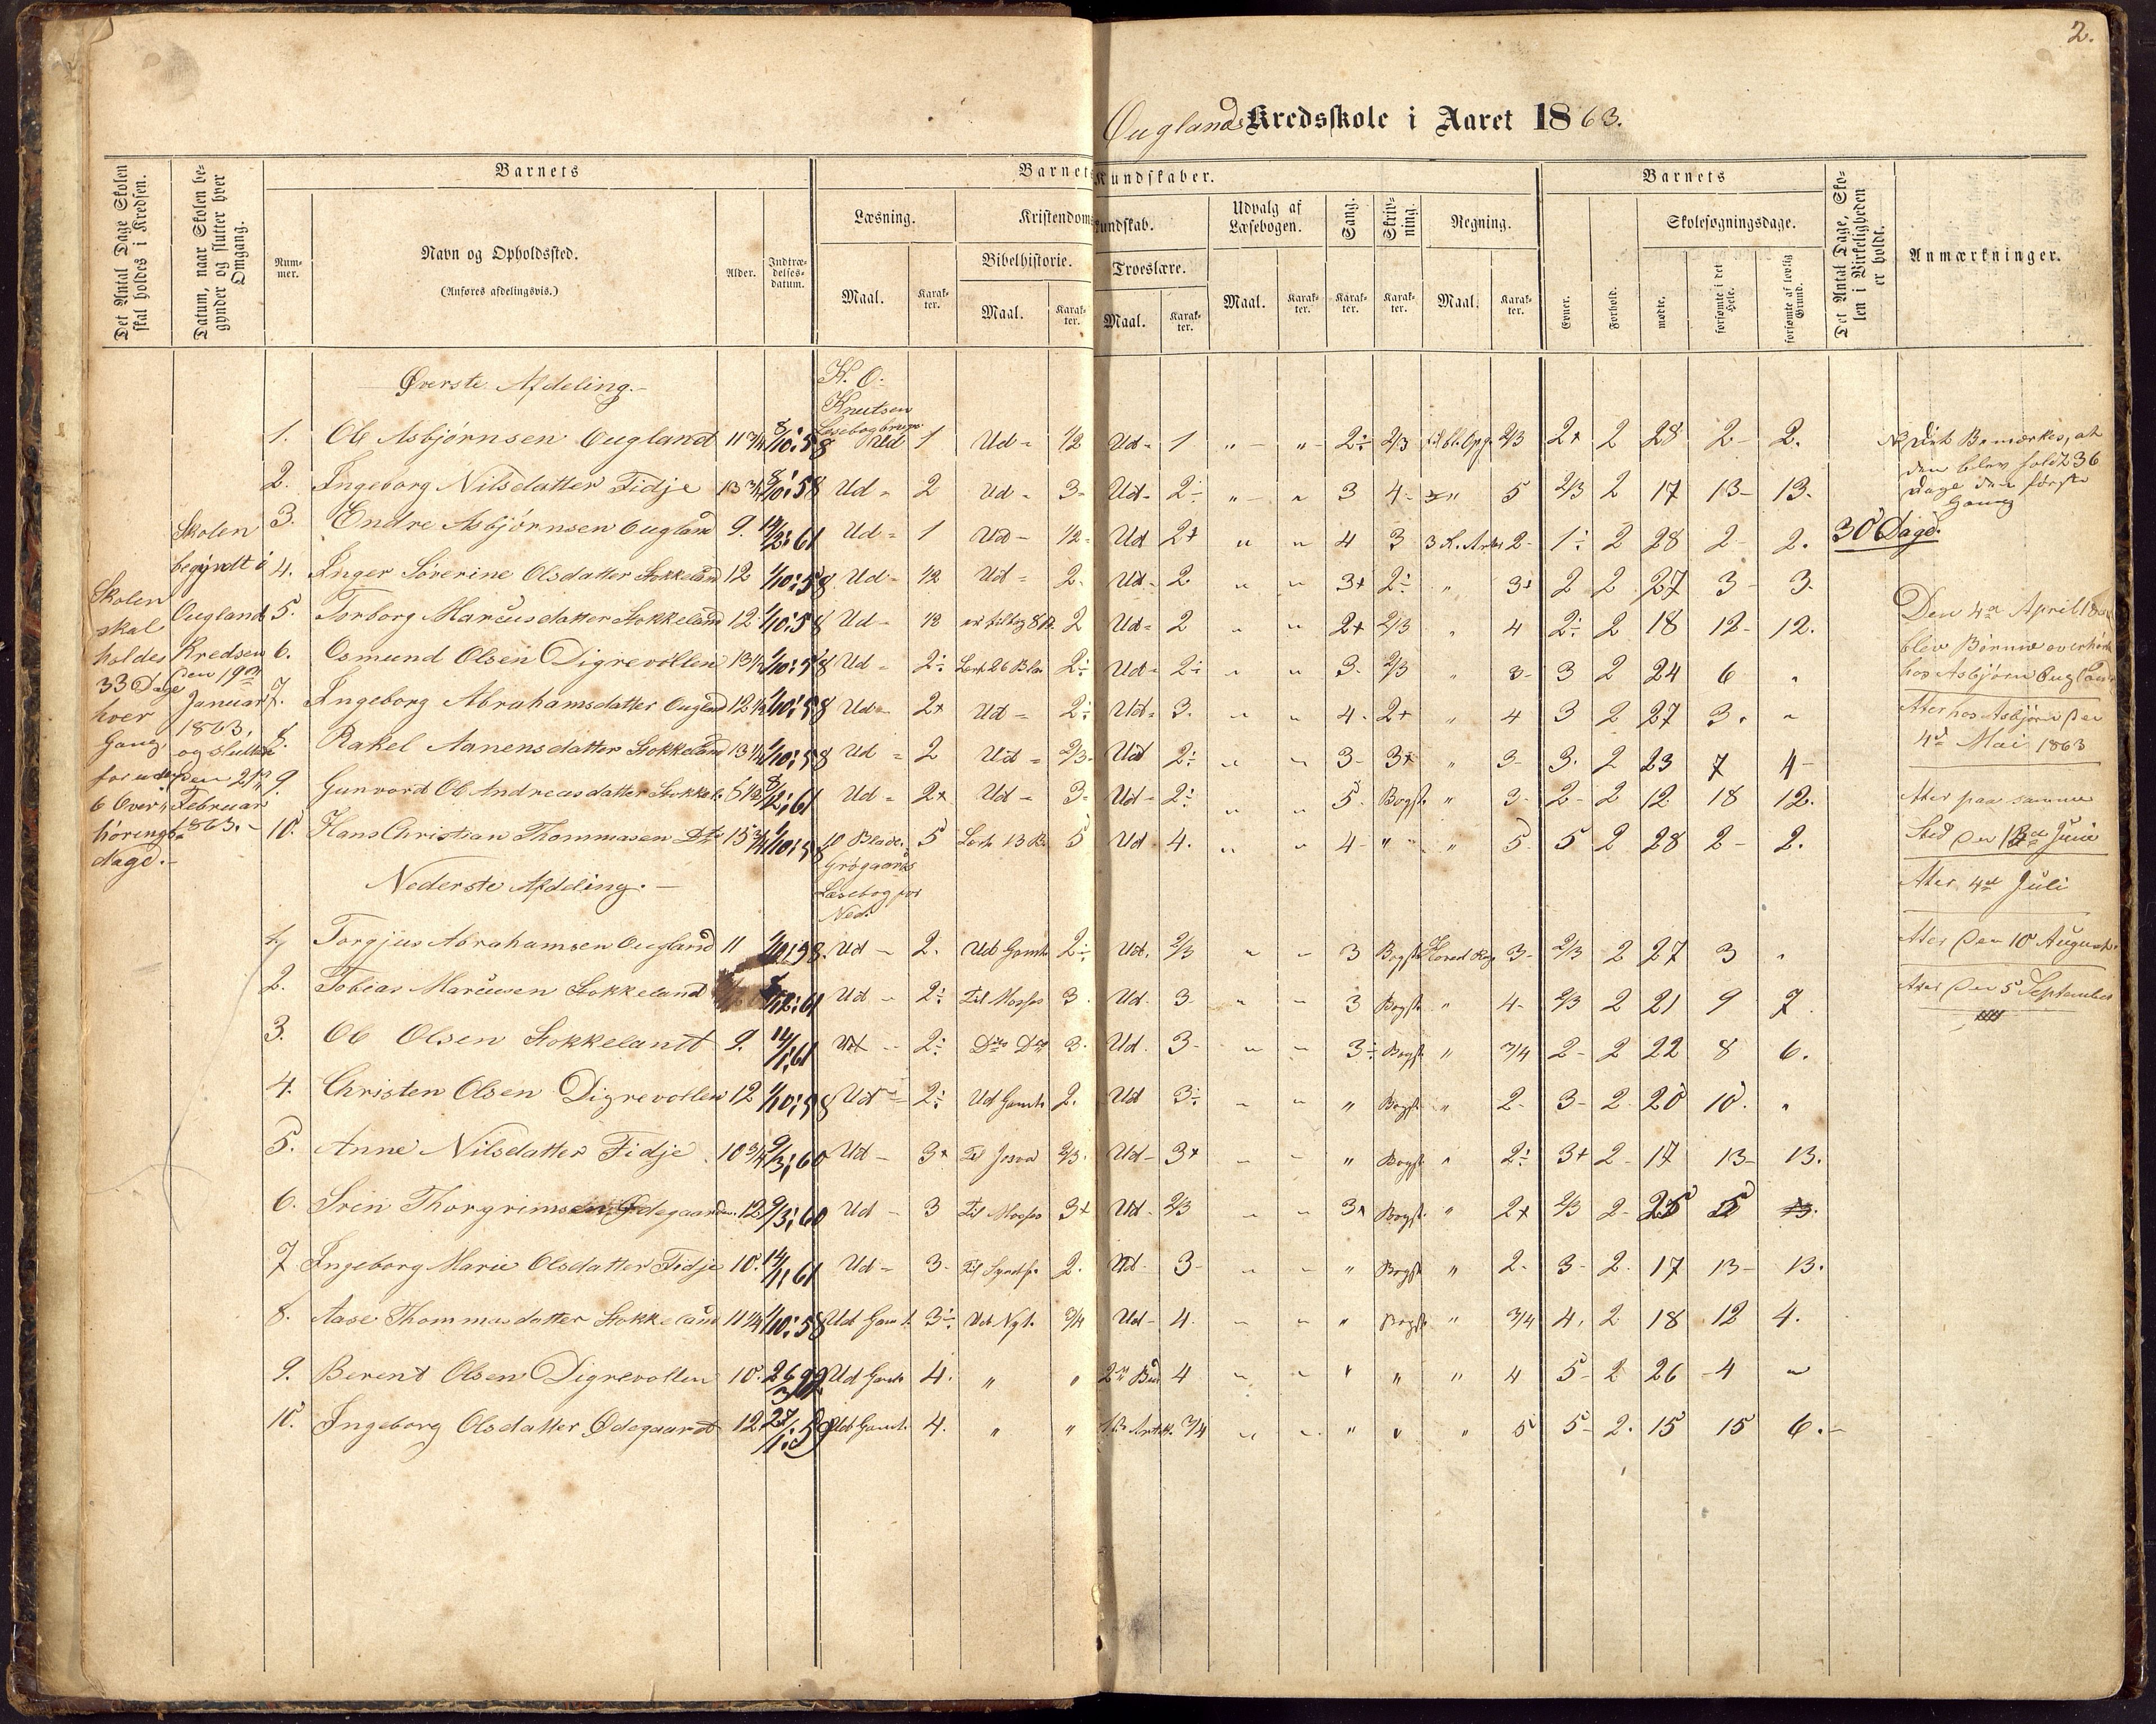 2.
Ouglands Kredsskole i Aaret 1863.
Det Antal Dage Skolen skal holdes i Kredsen.
Datum, naar Skolen begynder og slutter hver Omgang.
Barnets
Num-mer.
Navn og Opholdssted.
(Anføres afdelingsvis.)
Alder.
Indtræ-delses-datum.
Barnets Kundskaber.
Læsning.
Maal.
Karak-ter.
Kristendomskundskab.
Bibelhistorie.
Maal.
Karak-ter.
Troeslære.
Maal.
Karak-ter.
Udvalg af Læsebogen.
Maal.
Karak-ter.
Sang.
Karak-ter.
Skriv-ning.
Karak-ter.
Regning.
Maal.
Karak-ter.
Barnets
Evner.
Forhold.
Skolesøgningsdage.
mødte.
forsømte i det Hele.
forsømte af lovlig Grund.
Det Antal Dage, Skolen i Virkeligheden er holdt.
Anmærkninger.
Skolen
skal
holdes
33 Dage
hver
Gang
foruden
6 Over-
hørings-
dage.
Skolen
begyndt i
Ougland
Kredsen
den 19de
Januar
1863,
og sluttede
den 21de
Februar
1863.
Øverste Afdeling.
K. O. Knutsen
1. Ole Asbjørnsen Ougland 11 3/4 8/10:58 Ud 1 Ud 1/2 Ud 1 " " 2÷ 2/3 2/3 2+ 2 28 2 2.
2. Ingeborg Nilsdatter Fidje 13 3/4 8/10:58 Ud 2 Ud 3 Ud 2÷ " " 3 4 " 5 2/3 2 17 13 13.
3. Endre Asbjørnsen Ougland 9. 61 Ud 1 Ud 1/2 Ud 2+ " " 4 3 2 1÷ 2 28 2 2. 30 Dage.
4. Inger Sørerine Olsdatter Stokkeland 12 1/10:58 Ud 1/2 Ud 2. Ud 2 " " 3+ 2÷ " 3+ 2 2 27 3 3
5. Torborg Marcusdatter Stokkeland 12 1/10:58 Ud 1/2 2 Ud 2 " " 2+ 2/3 " 4 2÷ 2 18 12 12.
6. Osmund Olsen Digrevollen 13 1/2 1/10:58 Ud 2÷ 2÷ Ud 2÷ " " 3 2/3 " 3 3 2 24 6 "
7. Ingeborg Abrahamsdatter Ougland 12 1/4 1/10:58 Ud 2+ Ud 2÷ Ud 3. " " 4 2+ " 4 3 2 27 3 "
8. Rakel Aanensdatter Stokkeland 13 1/4 1/10:58 Ud 2 Ud 2/3 Ud 2÷ " " 3 3+ " 3 3 2 23 7 4
9. Gunvord Ol Andreasdatter Stokkel. 61 Ud 2+ Ud 3 Ud 2÷ " " 5 Bogst. " 3 2 2 12 18 12.
10. Hans Christian Thommasen Dto 15 3/4 1/10:58 10 Blade 5 5 Ud 4. " " 4 " " 5 5 2 28 2 2.
Nederste Afdeling.
Læsebog for
1. Torgjus Abrahamsen Ougland 11 1/10:58. Ud 2. Ud Gamle 2÷ Ud. 2/3 " " 3 Bogst. 3 2/3 2 27 3 "
2. Tobias Marcusen Stokkeland 61 Ud 2÷ Til Moses 3. Ud. 3 " " 3 Bogst. " 4 2/3 2 21 9 7.
3. Ole Olsen Stokkelandt 9. 14/1:61 Ud 2÷ Dito Do 3. Ud. 3 " " 3÷ Bogst " 3/4 2 2 22 8 6.
4. Christen Olsen Digrevollen 12 1/10:58 Ud 2÷ Ud Gamle 2. Ud 3÷ " " " Bogst. " 2 3 2 20 10. "
5. Anne Nilsdatter Fidje 10 3/4 9/3:60 Ud 3+ Til Josva 2/3 Ud 3+ " " " Bogst " 2÷ 3+ 2 17 13 13.
6. Sren Thorgrimsen Ødegaarden. 12 9/3:60 Ud 3 Til Moses 3+ Ud. 2/3 " " 3+ Bogst. " 2+ 2/3 2 25 5
7 Ingeborg Marie Olsdatter Fidje 10. 14/1:61 Ud 3 2. Ud 3 " " " Bogst " 2 3 2. 17 13 13.
8. Aase Thommasdatter Stokkeland 11 1/4 1/10:58 Ud Gaml. 3÷ Ud Nyt. 3/4 Ud 4. " " " Bogst " 3/4 4. 2 18 12 4.
9. Berent Olsen Digrevollen 10. Ud Gamle 4. " " 4 " " " " " 4 5 2 26 4 "
10. Ingeborg Olsdatter Ødegaardt 12 27/1:59 Ud Gamle. 4. " " 3/4 " " " " " 5 5 2. 15 15 6.
Det Bemærkes, at
den blev holdt 36
Dage den første
Gang
Den 4de April
blev Børnene overhørte
hos Asbjørn Ougland
Ater hos Asbjørn den
4de Mai 1863
Ater paa samme
Sted den Juni
Ater 4de Juli
Ater den 10 August
Ater den 5 September